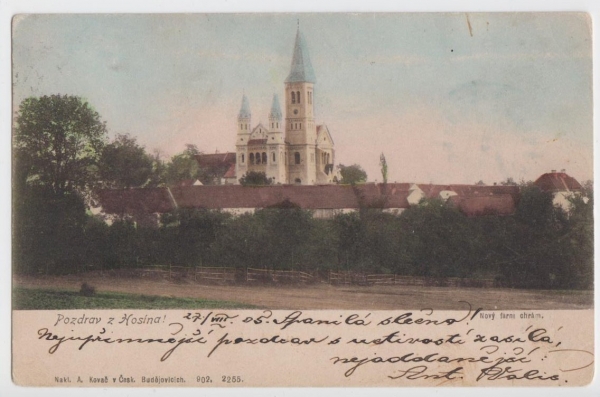 Pozdrav z Hosína!
27/VIII. 05. Spanilá slečno!
Nový farní chrám.
Nejupřímnější pozdrav s uctivostí zasílá,
nejoddanější
Ant. Valic.
Nakl. A. Kovač v Česk. Budějovicích. 902. 2255.